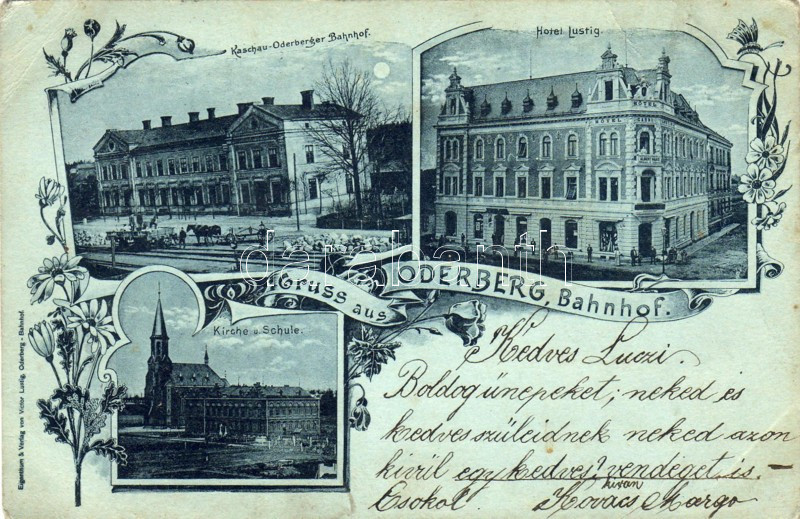 Kaschau-Oderberger Bahnhof.
Hotel Lustig.
HOTEL
HOTEL
Gruss aus ODERBERG, Bahnhof.
Kirche u. Schule.
Eigenthum & Verlag von Victor Lustig, Oderberg - Bahnhof.
darabanth
Kedves Luczi.
Boldog ünepeket, neked es
kedves szüleidnek neked azon
kivül egy kedves? vendéget is. –
kiván
Csokol Kovács Margo